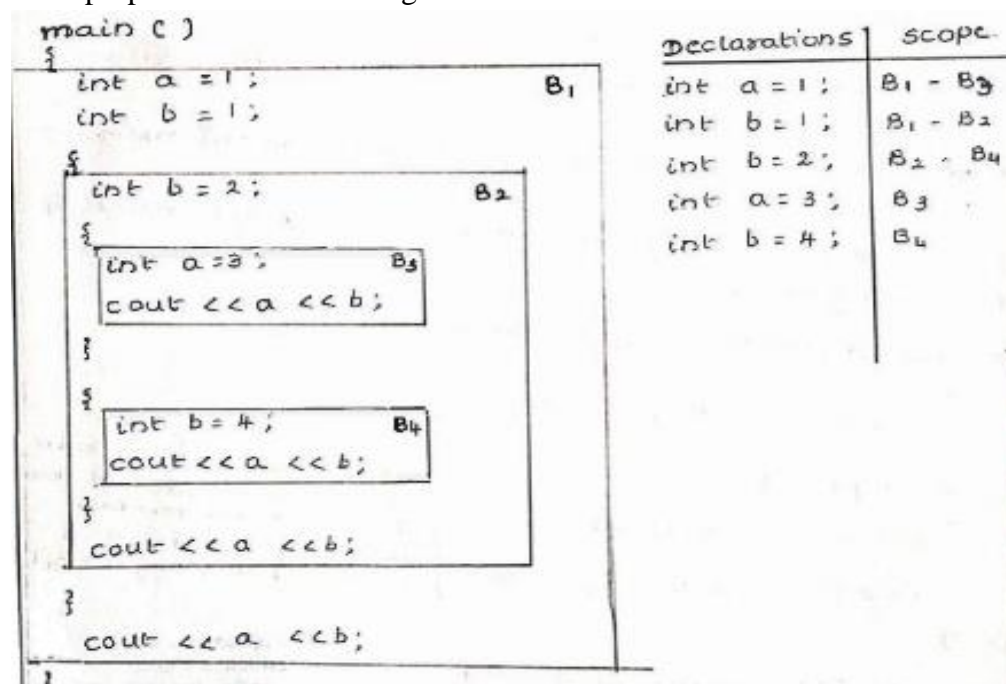 main ( )
{
int a = 1 ;
B1
int b = 1 ;
{
int b = 2 ;
B2
{
int a = 3 ;
B3
cout << a << b ;
}
{
int b = 4 ;
B4
cout << a << b ;
}
cout << a << b ;
}
cout << a << b ;
}
Declarations scope.
int a = 1 ; B1 - B3
int b = 1 ; B1 - B2
int b = 2 ; B2 - B4
int a = 3 ; B3
int b = 4 ; B4